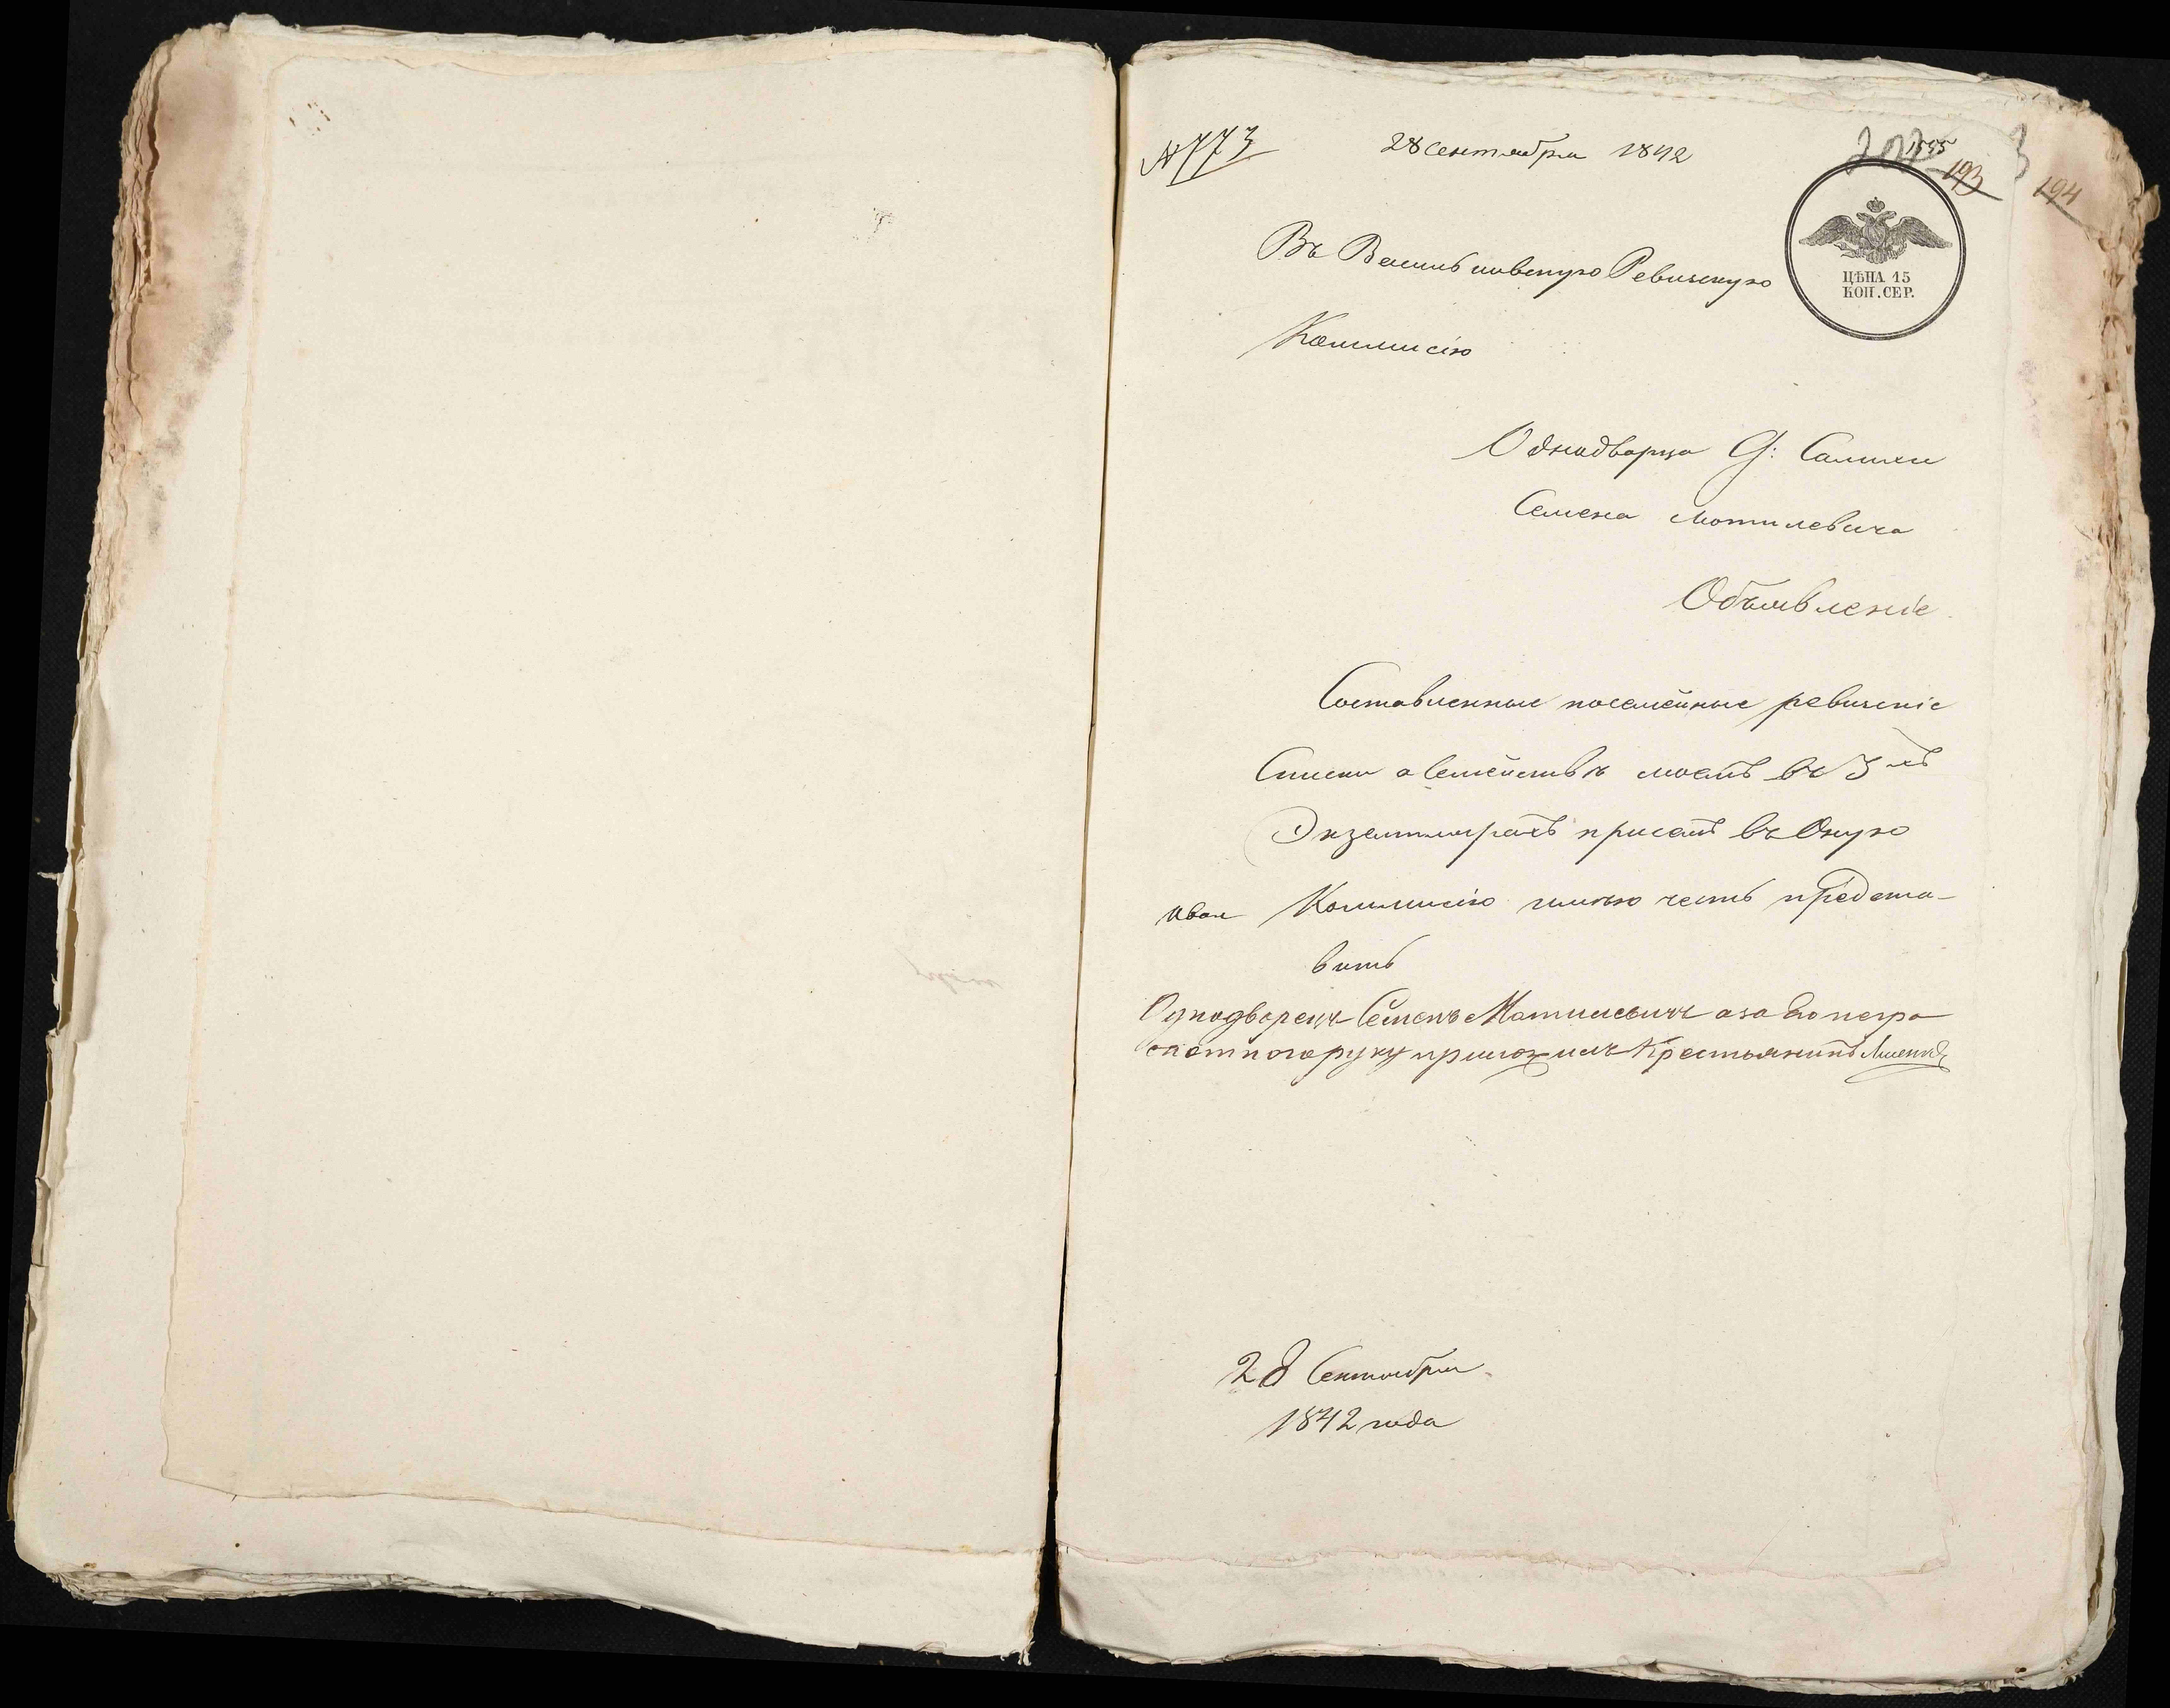 № 773
28 Сентября 1842
1595
193
194
ЦѢНА 15
КОП. СЕР.
Въ Васильковскую Ревизскую
Коммисію
Однодворца С: Салихи
Семена Мотилевича
Объявленіе
Составленныя посемейные ревизскіе
Списки о Семействѣ моемъ въ 3хъ
Экземплярахъ присемъ въ Оную
Коммисію имѣю честь предста-
вить
Однодворецъ Семенъ Матилевичъ азаего негра
мотного руку приложилъ Крестьянинъ
28 Сентября
1842 года